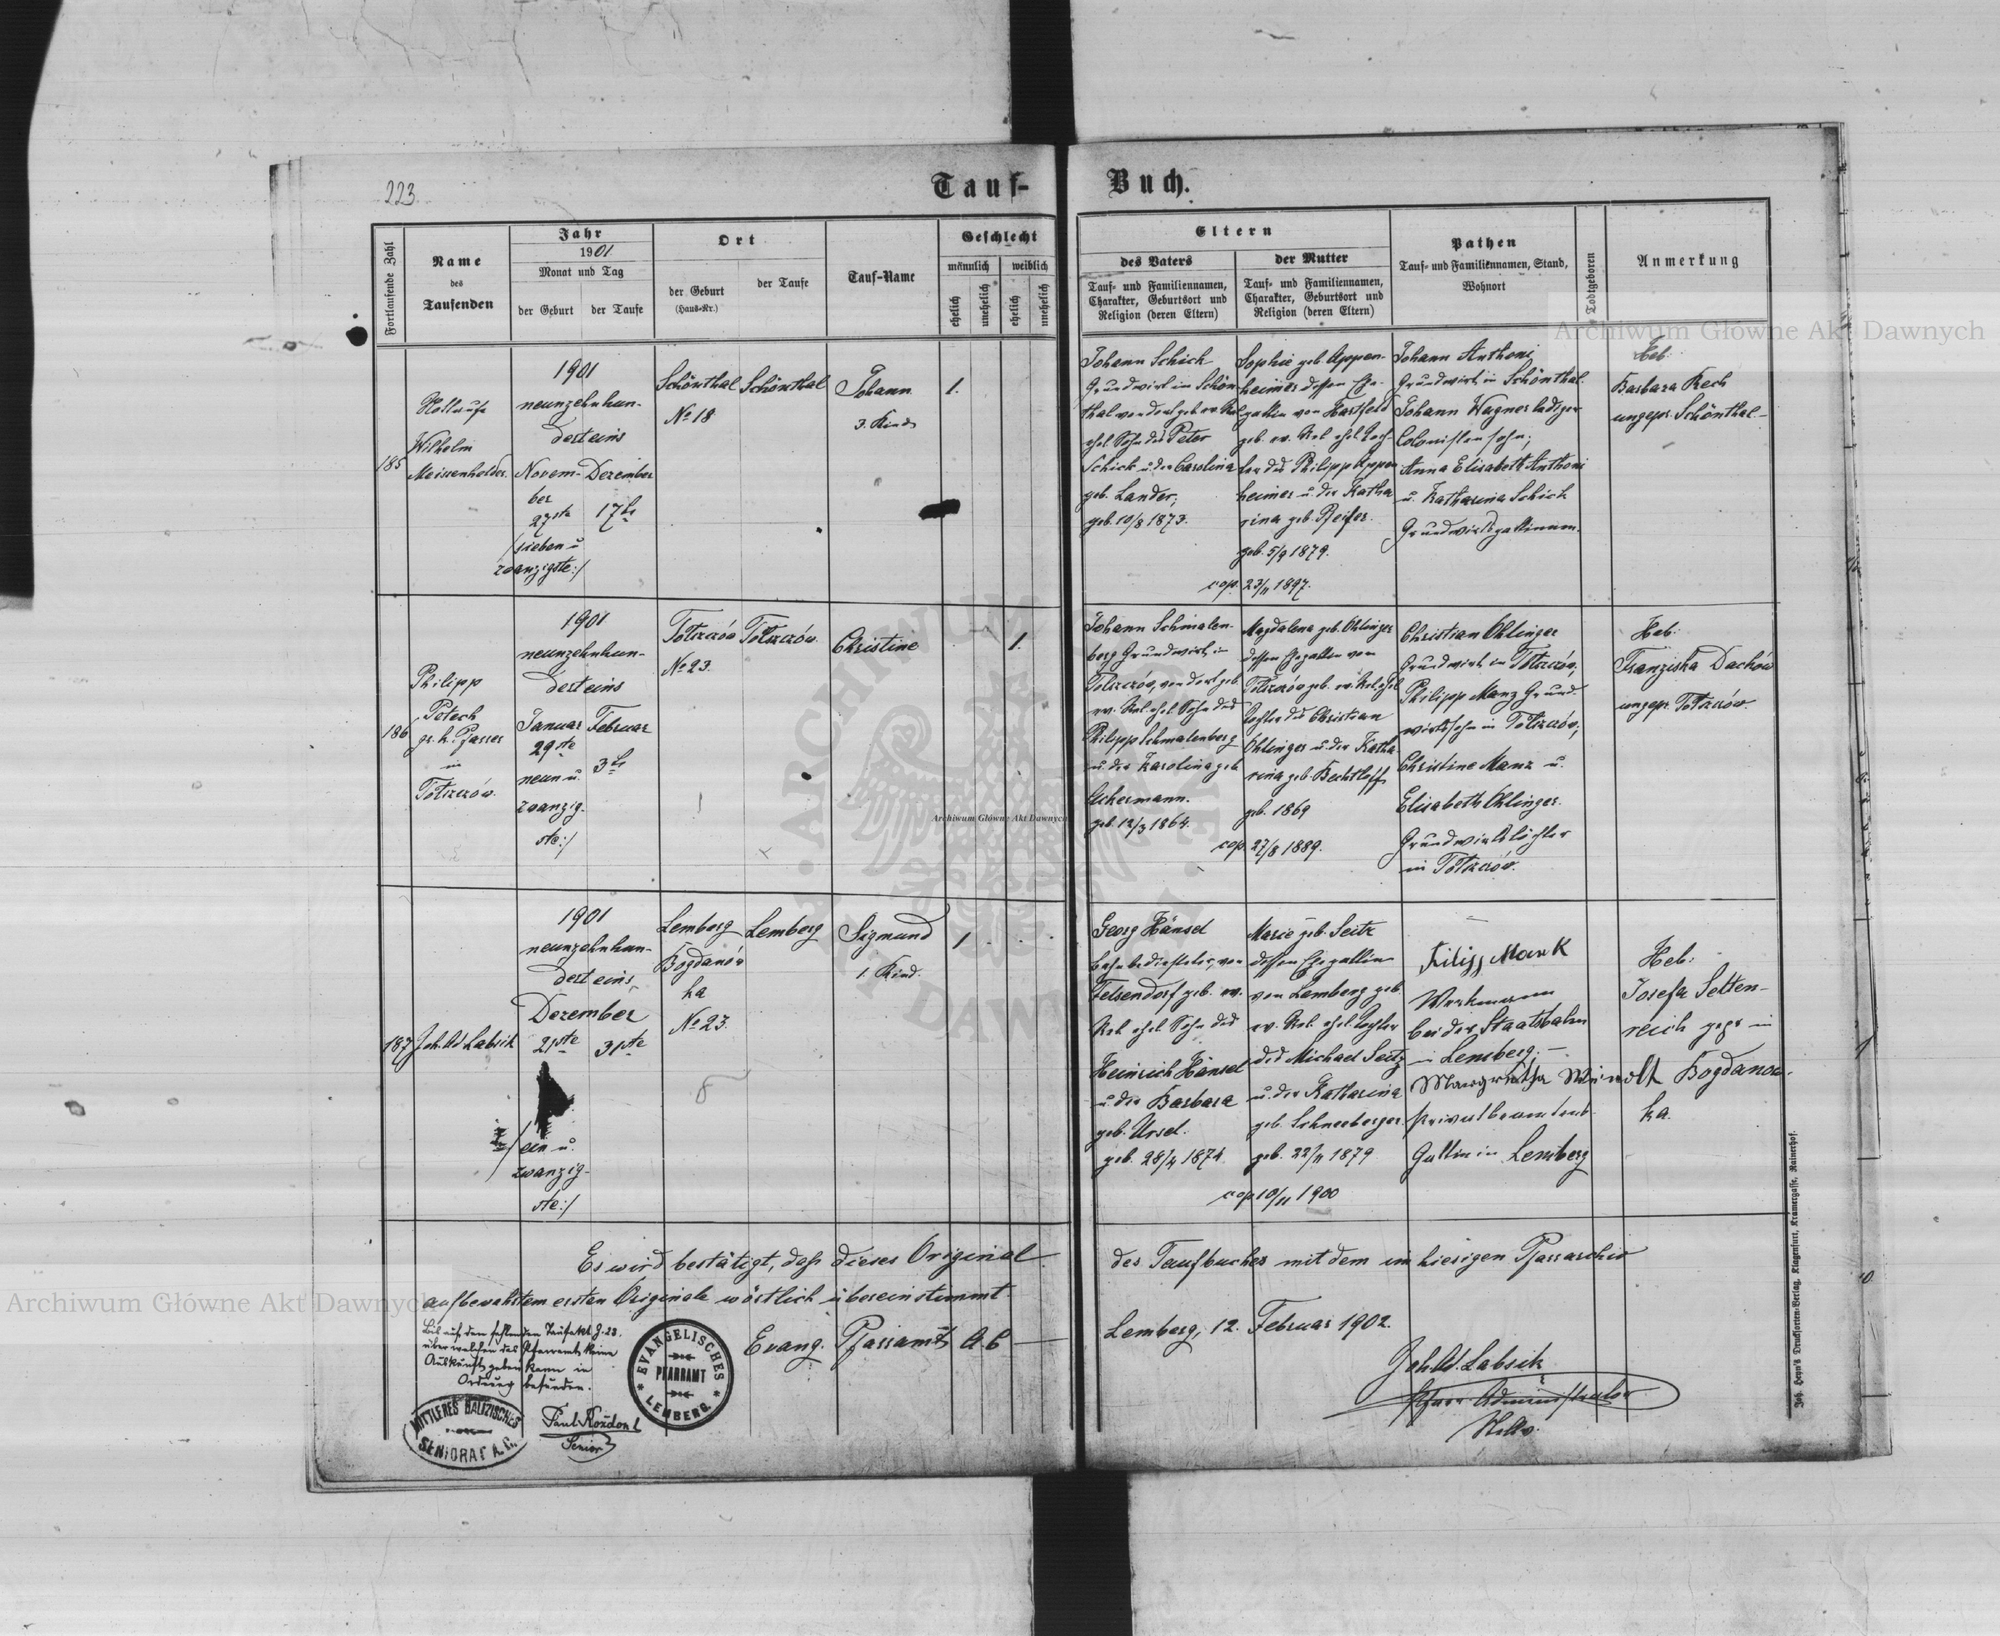 223.
Tauf-Buch.
Fortlaufende Zahl
Name
des
Taufenden
Jahr
1901
Monat und Tag
der Geburt
der Taufe
Ort
der Geburt
(Haus-Nr.)
der Taufe
Tauf-Name
Geschlecht
männlich
weiblich
ehelich
unehelich
ehelich
unehelich
Eltern
des Vaters
Tauf- und Familiennamen,
Charakter, Geburtsort und
Religion (deren Eltern)
der Mutter
Tauf- und Familiennamen,
Charakter, Geburtsort und
Religion (deren Eltern)
Pathen
Tauf- und Familiennamen, Stand,
Wohnort
Todtgeboren
Anmerkung
185
Wilhelm
Meissenhelder.
1901
neunzehnhun-
dert eins
Novem-
ber
27ste
/sieben u
zwanzigste:/
Dezember
17te
Schönthal
No 18
Schönthal
Johann
3. Kind
1.
Johann Schick
Grundwirt in Schön-
thal von dort geb. ev. Rel
ehel. Sohn des Peter
Schick u. der Carolina
geb. Lander,
geb. 10/8 1873.
Sophie geb. Appen-
heimer dessen Ehe-
gattin von Hartfeld
geb. ev. Rel. ehel. Toch-
ter des Philipp Appen
heimer u. der Katha
rina geb. Pfeifer.
geb. 5/9 1879.
cop. 23/11 1897.
Johann Anthoni
Grundwirt in Schönthal.
Johann Wagner lediger
Colonistensohn;
Anna Elisabeth Anthoni
u. Katharina Schick
Grundwirtsgattinnen.
Heb:
Barbara Rech
ungepr. Schönthal.-
186
Philipp
Potech
gr. k. Pfarrer
in
Toszczów.
1901
neunzehnhun-
dert eins
Januar
29ste
neun u.
zwanzig-
ste:/
Februar
3te
No 23.
Christine
1.
Johann Schmalen-
berg Grundwirt in
ev. Rel. ehel. Sohn des
Philipp Schmalenberg
u. der Karolina geb.
Uchermann.
geb. 12/3 1864.
Magdalena geb. Ohlinger
dessen Ehegattin von
Tochter des Christian
Ohlinger u. der Katha
rina geb. Bechtloff
geb. 1869
cop. 27/8 1889.
Christian Ohlinger
Philipp Manz Grund-
Christine Manz u.
Elisabeth Ohlinger.
Grundwirtstöchter
Heb:
Franziska Dachów
187
Joh. Ad. Labsik
1901
neunzehnhun-
dert eins,
Dezember
21ste
31ste
/ein u.
zwanzig-
ste:/
Lemberg
Bogdanów
ka
No 23.
Lemberg
Sigmund
1. Kind.
1
Georg Hänsel
Bahnbediensteter, von
Felsendorf geb. ev.
Rel. ehel. Sohn des
Heinrich Hänsel
u. der Barbara
geb. Ursel.
geb. 28/4 1874.
Marie geb. Seitz
dessen Ehegattin
von Lemberg geb.
ev. Rel. ehel. Tochter
des Michael Seitz
u. der Katharina
geb. Schneeberger.
geb. 22/11 1879
cop 10/11 1900
Filipp Mank
Werkmann
bei der Staatsbahn
in Lemberg.-
Privatbeamtens
Gattin in Lemberg
Heb:
Josefa Selten-
reich gepr in
Bogdanow-
ka.
Es wird bestätigt, dass dieses Original des Taufbuches mit dem im hiesigen Pfarrarchiv
aufbewahrtem ersten Originale wörtlich übereinstimmt.
Evang. Pfarramt A. C. — Lemberg, 12. Februar 1902.
Joh. Ad. Labsik
Pfarr-Administrator
Bis auf den fehlenden Taufakt Z. 23.
über welchen das Pfarramt keine
Auskunft geben kann in
Ordnung befunden.
Paul Kozdon
Senior
EVANGELISCHES
PFARRAMT
LEMBERG.
MITTLERES GALIZISCHES
SENIORAT A.C.
Joh. Heyn's Drucksorten-Verlag, Klagenfurt, Kramergasse, Rainerhof.
Archiwum Główne Akt Dawnych
Archiwum Główne Akt Dawnych
Archiwum Główne Akt Dawnych
ARCHIWUM GŁÓWNE AKT DAWNYCH